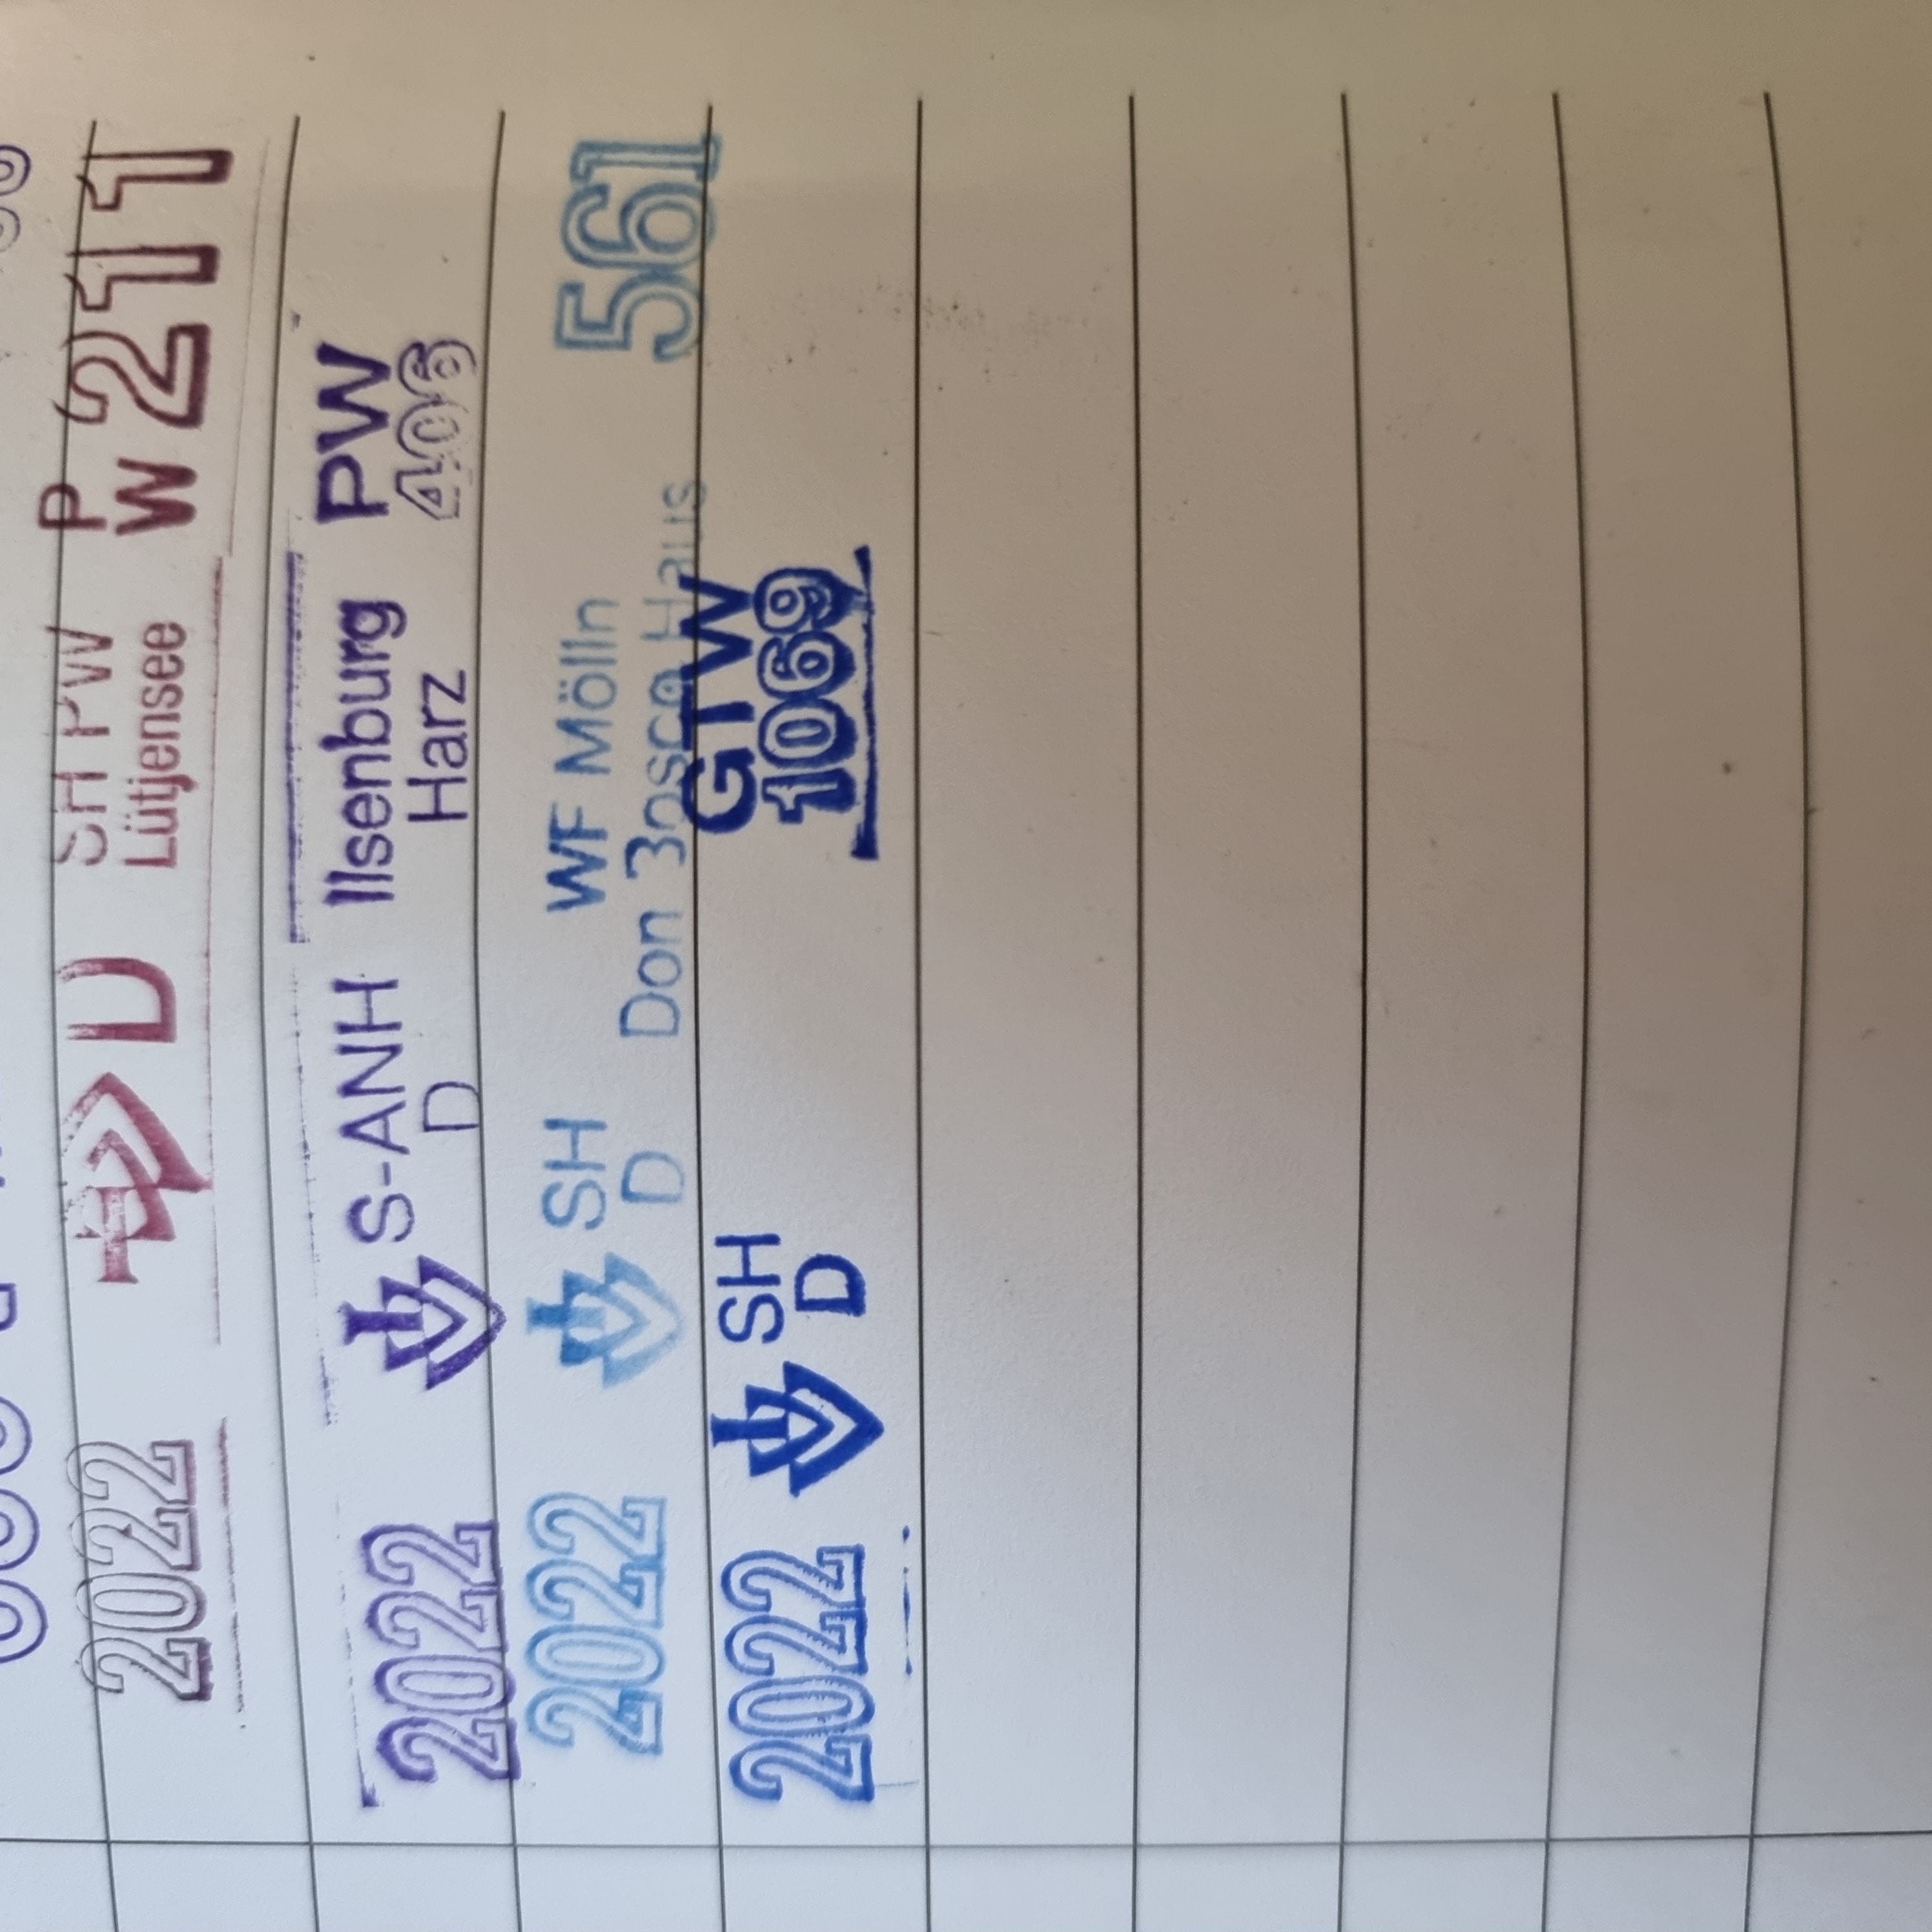 2022 D SH PW P
Lütjensee W 211
2022 S-ANH Ilsenburg PW
D Harz 406
2022 SH WF Mölln 561
D Don Bosco Haus
2022 SH GTW
D 1069